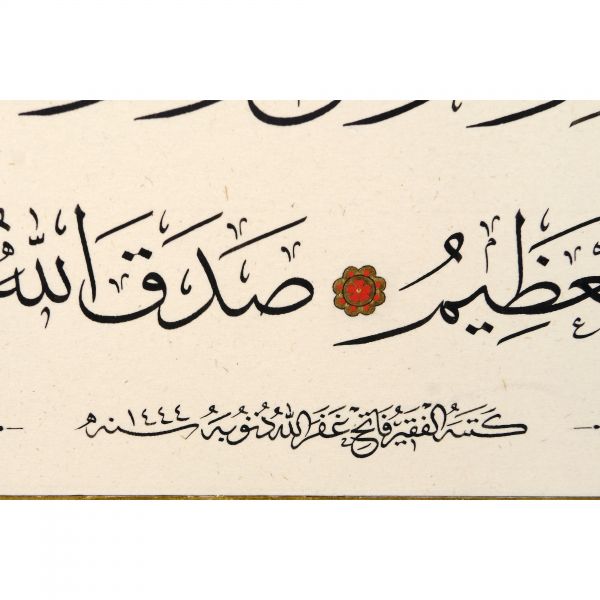 لعَظِيمُ صَدَقَ اللّٰهُ
كَتَبَهُ الفَقِيرُ فَاتِحُ غَفَرَ اللّٰهُ ذُنُوبَهُ سنه ١٤٤٤ ه